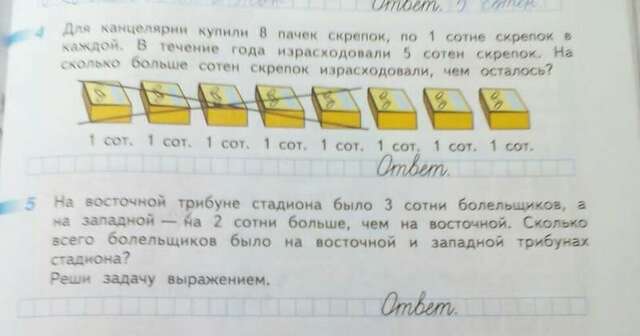 Ответ.
4 Для канцелярии купили 8 пачек скрепок, по 1 сотне скрепок в
каждой. В течение года израсходовали 5 сотен скрепок. На
сколько больше сотен скрепок израсходовали, чем осталось?
1 сот. 1 сот. 1 сот. 1 сот. 1 сот. 1 сот. 1 сот. 1 сот.
Ответ.
5 На восточной трибуне стадиона было 3 сотни болельщиков, а
на западной — на 2 сотни больше, чем на восточной. Сколько
всего болельщиков было на восточной и западной трибунах
стадиона?
Реши задачу выражением.
Ответ.